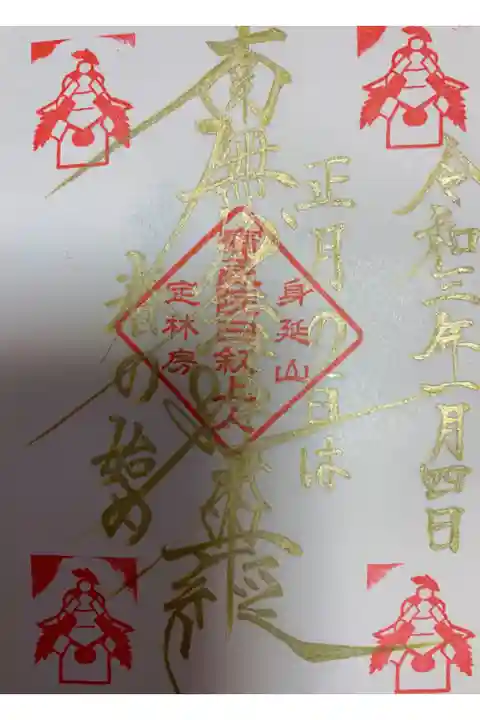 令和三年一月四日
正月の一日は
南無妙法蓮華経
春の始め
身延山
日叙上人
定林房